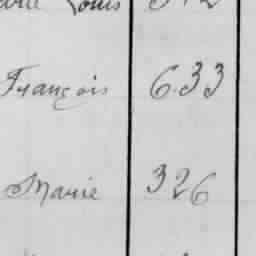 Louis 312
François 633
Marie 326